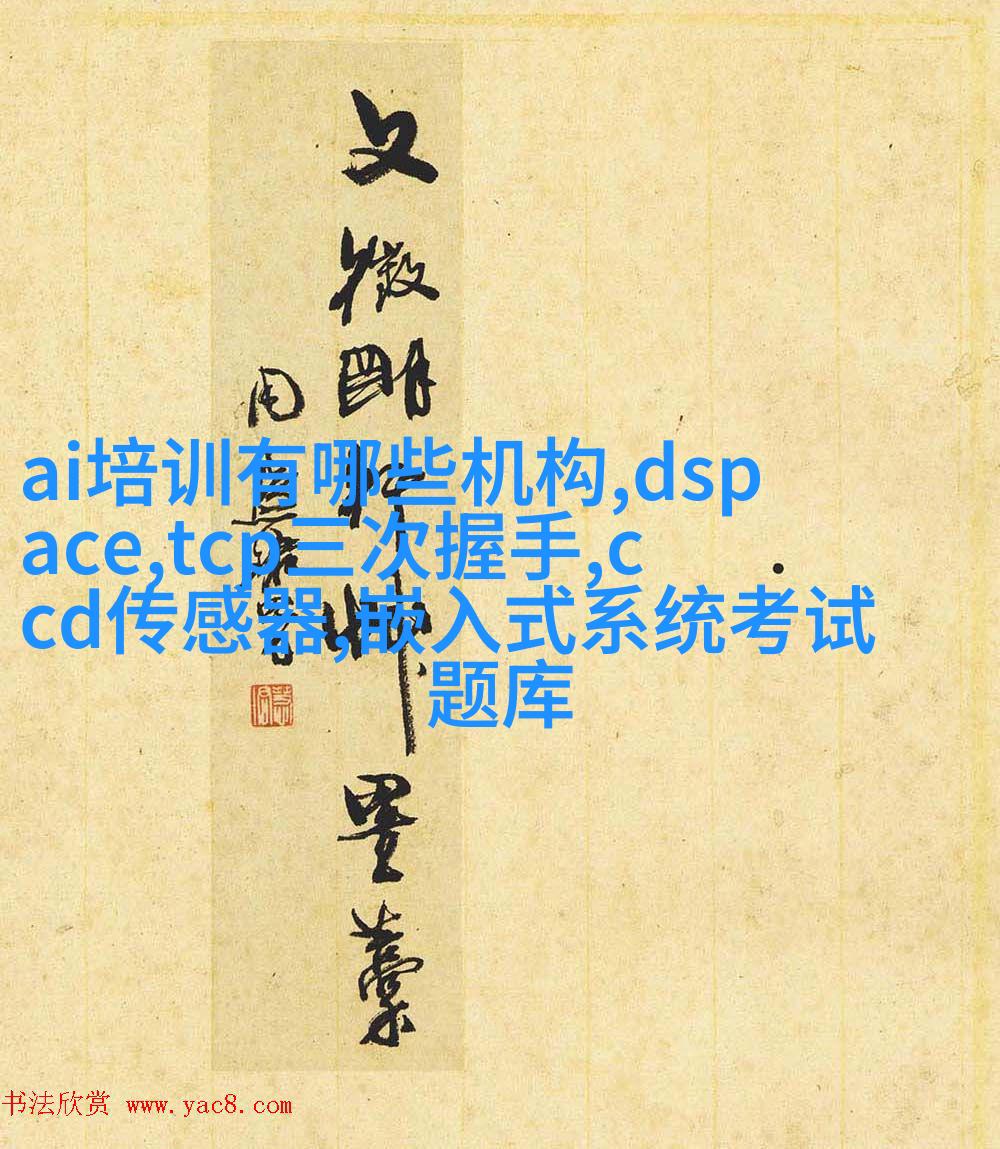 文徵明
墨藁
ai培训有哪些机构,dsp
ace,tcp三次握手,c
cd传感器,嵌入式系统考试
题库
书法欣赏 www.yac8.com